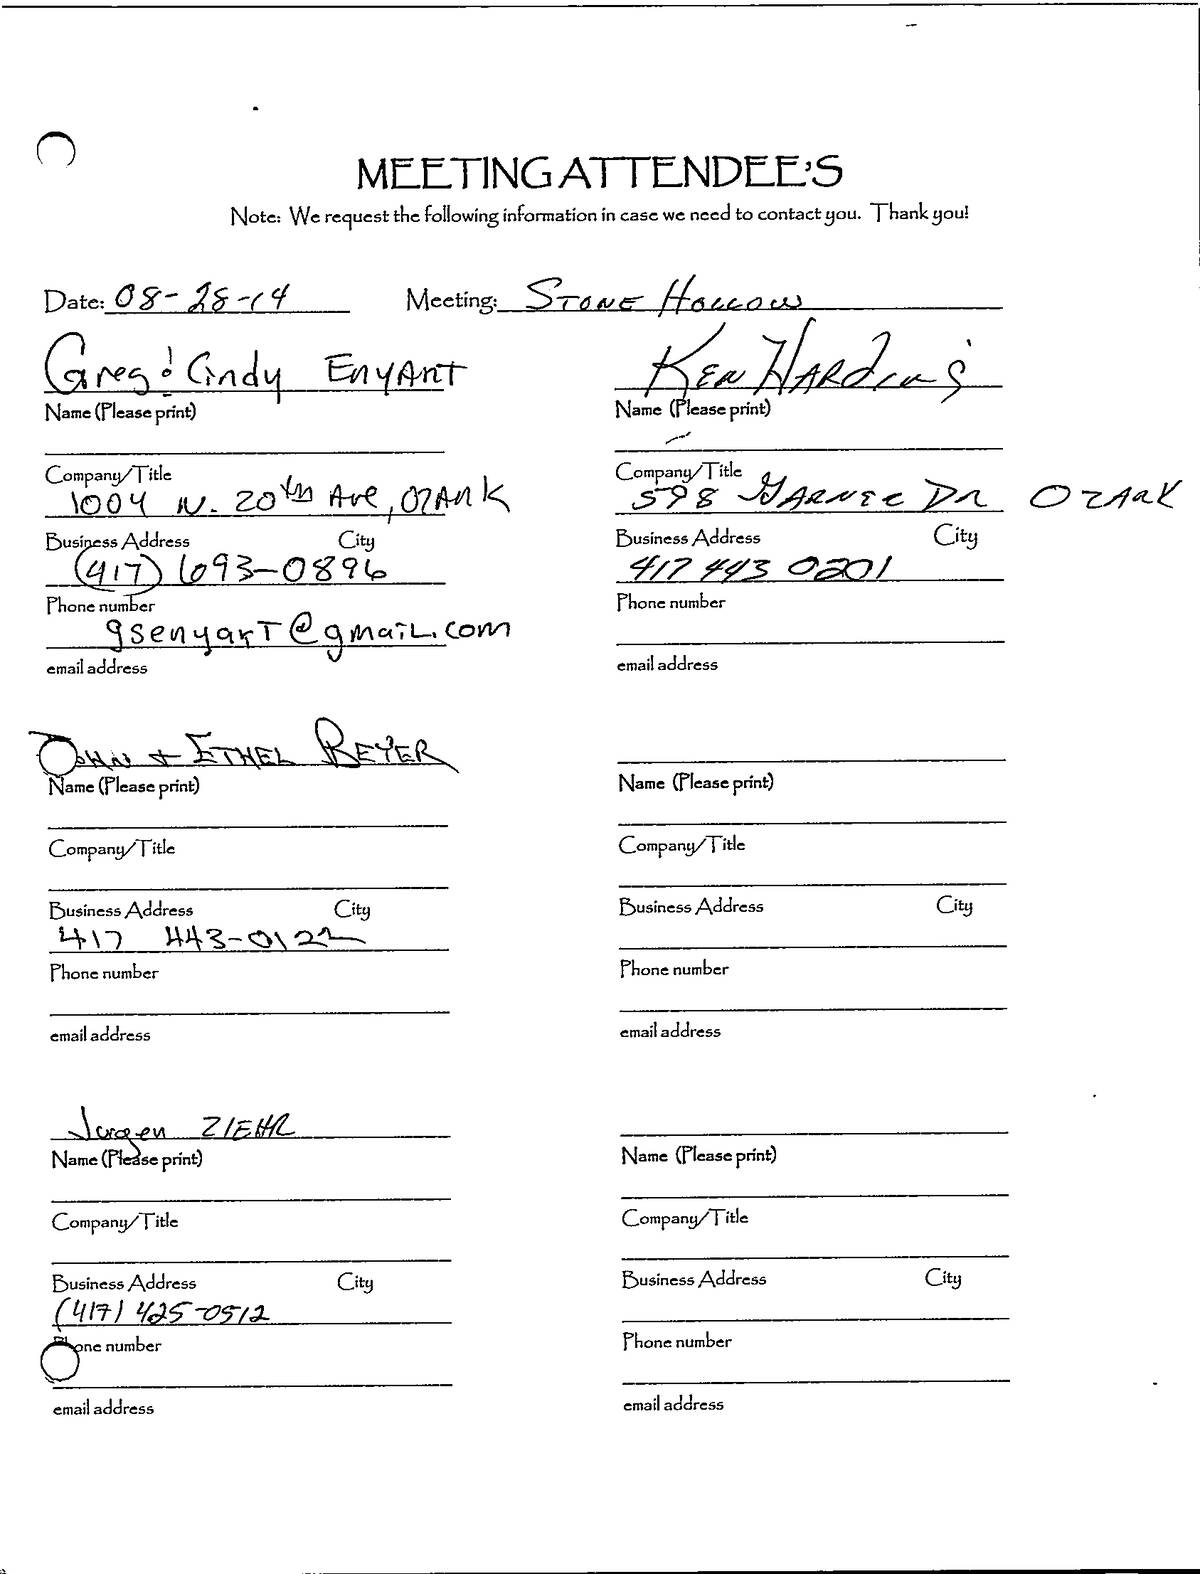 MEETING ATTENDEE'S
Note: We request the following information in case we need to contact you. Thank you!
Date: 08-28-14 Meeting: STONE HOLLOW
Greg & Cindy ENYART
Name (Please print)
Company/Title
1004 N. 20th Ave, OZARK
Business Address City
(417) 693-0896
Phone number
gsenyart@gmail.com
email address
KEN HARDING
Name (Please print)
Company/Title
598 DR OZARK
Business Address City
417 443 0201
Phone number
email address
JOHN & ETHEL BEYER
Name (Please print)
Company/Title
Business Address City
417 443-0122
Phone number
email address
Name (Please print)
Company/Title
Business Address City
Phone number
email address
Jurgen ZIEHR
Name (Please print)
Company/Title
Business Address City
(417) 425-0512
Phone number
email address
Name (Please print)
Company/Title
Business Address City
Phone number
email address